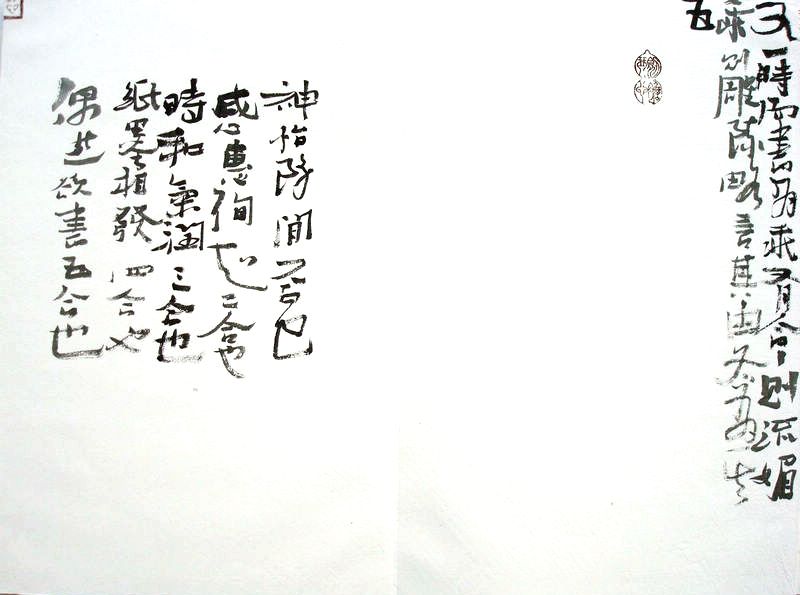 又一時而書有乖有合合則流媚
乖則雕疎略言其由各有其
五
神怡務閒一合也
感惠徇知二合也
時和氣潤三合也
紙墨相發四合也
偶然欲書五合也